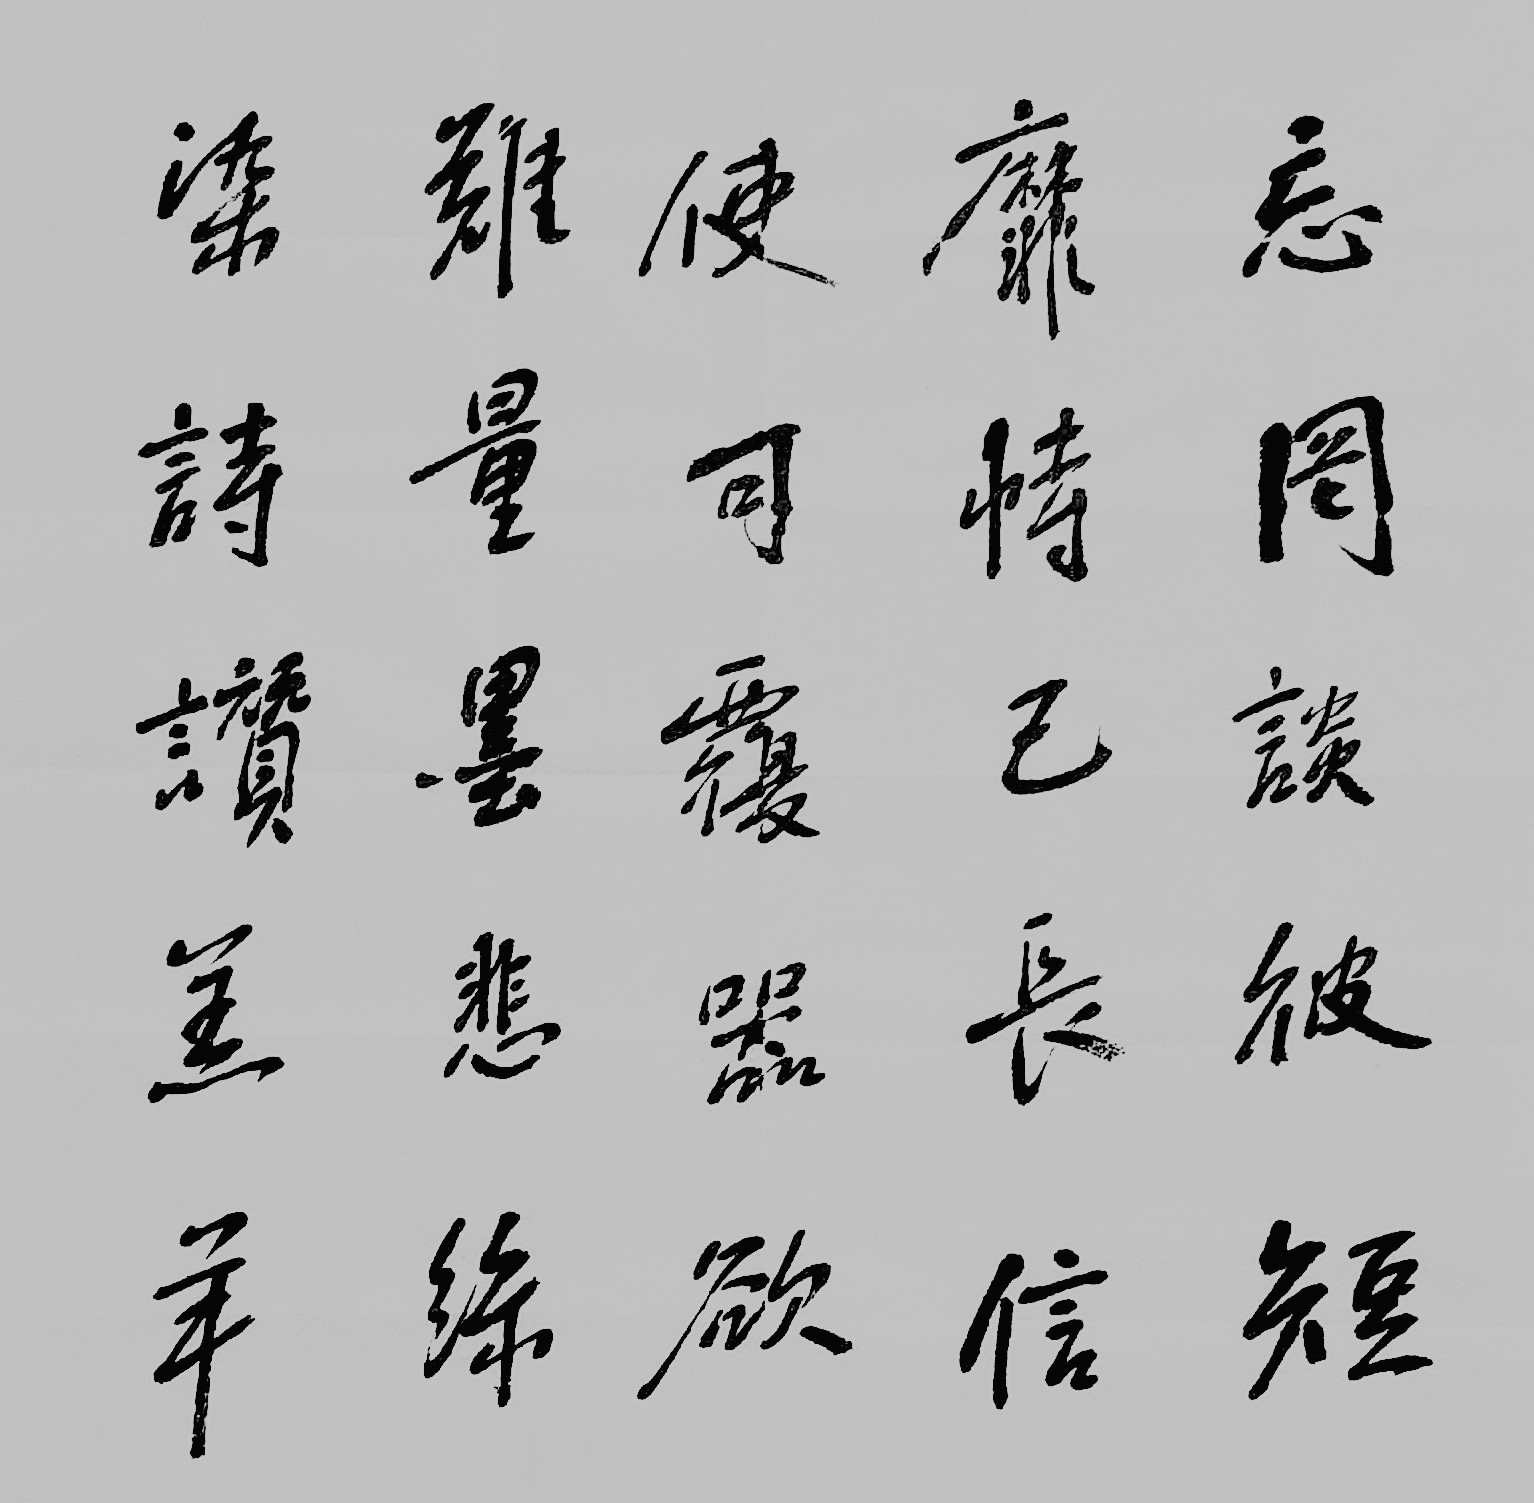 忘罔談彼短
靡恃己長信
使可覆器欲
難量墨悲絲
染詩讚羔羊